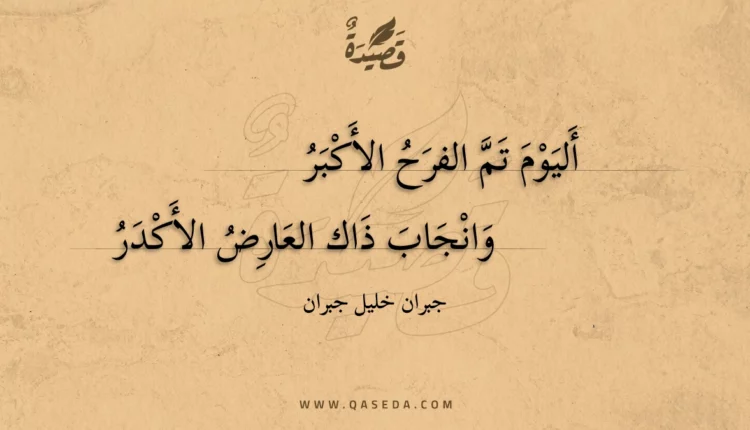 قَصِيْدَةٌ
أَليَوْمَ تَمَّ الفرَحُ الأَكْبَرُ
وَانْجَابَ ذَاك العَارِضُ الأَكْدَرُ
جبران خليل جبران
WWW.QASEDA.COM